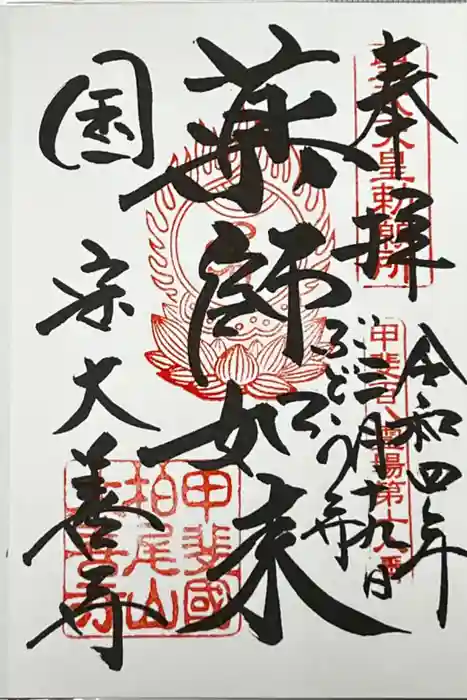 奉拝
聖武天皇勅願所
令和四年
三月十九日
甲斐百八霊場第十八番
ぶどう寺
薬師如来
国宝大善寺
甲斐國
柏尾山
大善寺